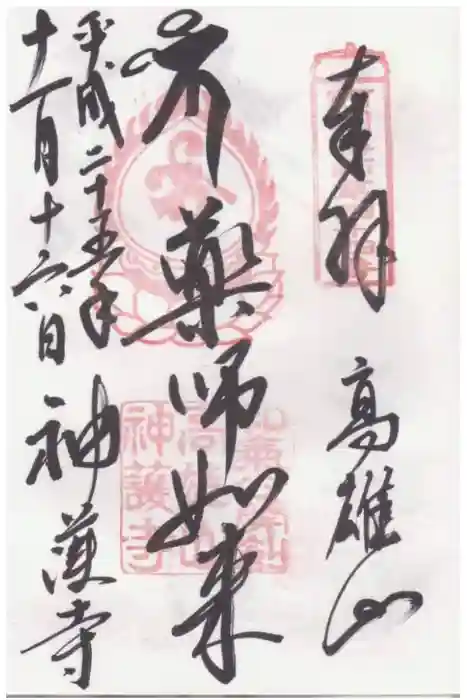 奉拝 高雄山
薬師如来
平成二十五年
十一月十六日 神護寺